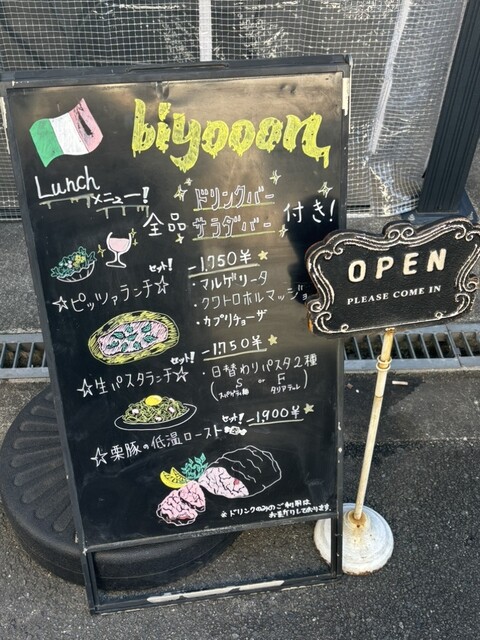 biyooon
Lunch
メニュー!
全品 ドリンクバー サラダバー 付き!
☆ピッツァランチ☆ セット! -1,950¥
・マルゲリータ
・クワトロホルマッジョ
・カプリチョーザ
☆生パスタランチ☆ セット! -1,750¥
・日替わりパスタ2種
( S or F タリアテッレ )
☆栗豚の低温ロースト セット! -1,900¥
※ドリンクのみのご利用は
お断りしております
OPEN
PLEASE COME IN